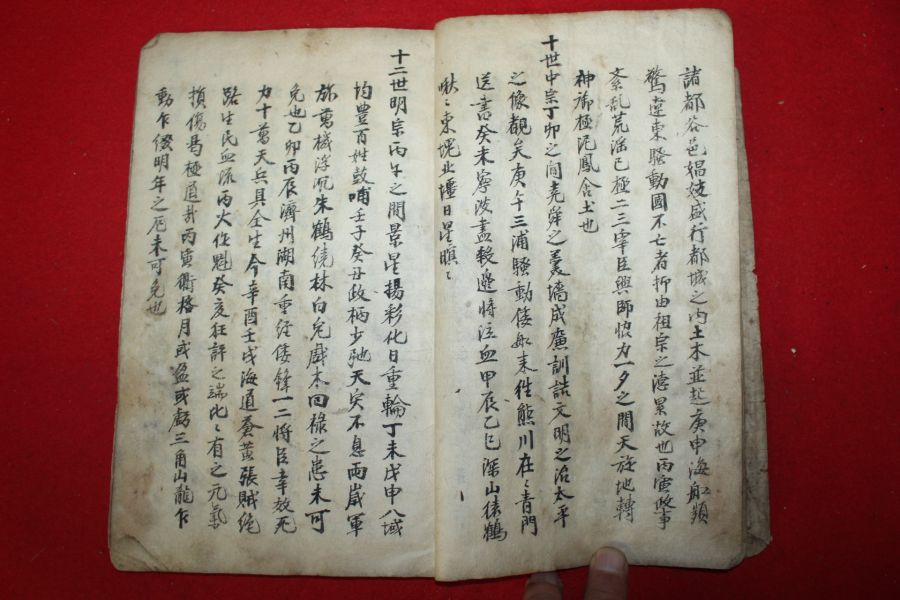 諸都谷邑娼妓盛行都城之內土木並起庚申海船類
驚遼東騷動國不亡者抑由祖宗之德累故也丙寅時事
紊乱荒淫已極二三宰臣興師恢力一夕之間天旋地轉
神術極
十世中宗丁卯之間堯舜之羹墻成廣訓誥文明之治太平
之像觀矣庚午三浦騷動倭船来往熊川在〻青門
送書癸未寧波盡殺邊将泣血甲辰乙巳深山猿鶴
啾〻東墝北壃日星暝〻
十二世明宗丙午之間景星揚彩化日重輪丁未戊申八域
均豊百姓鼓哺壬子癸丑政柄少馳天灾不息兩歲軍
旅蔑械浮沉朱鶴繞林白兔戱木回祿之患未可
免也乙卯丙辰濟州湖南重経倭鋒一二将臣幸效死
力十萬天兵具全生今辛酉壬戌海道蒼黃張賊絶
路生民血流丙火作魁癸亥狂評之端比〻有之元氣
損傷曷極道哉丙寅衝格月或盈或虧三角山龍乍
動乍僾明年之厄未可免也